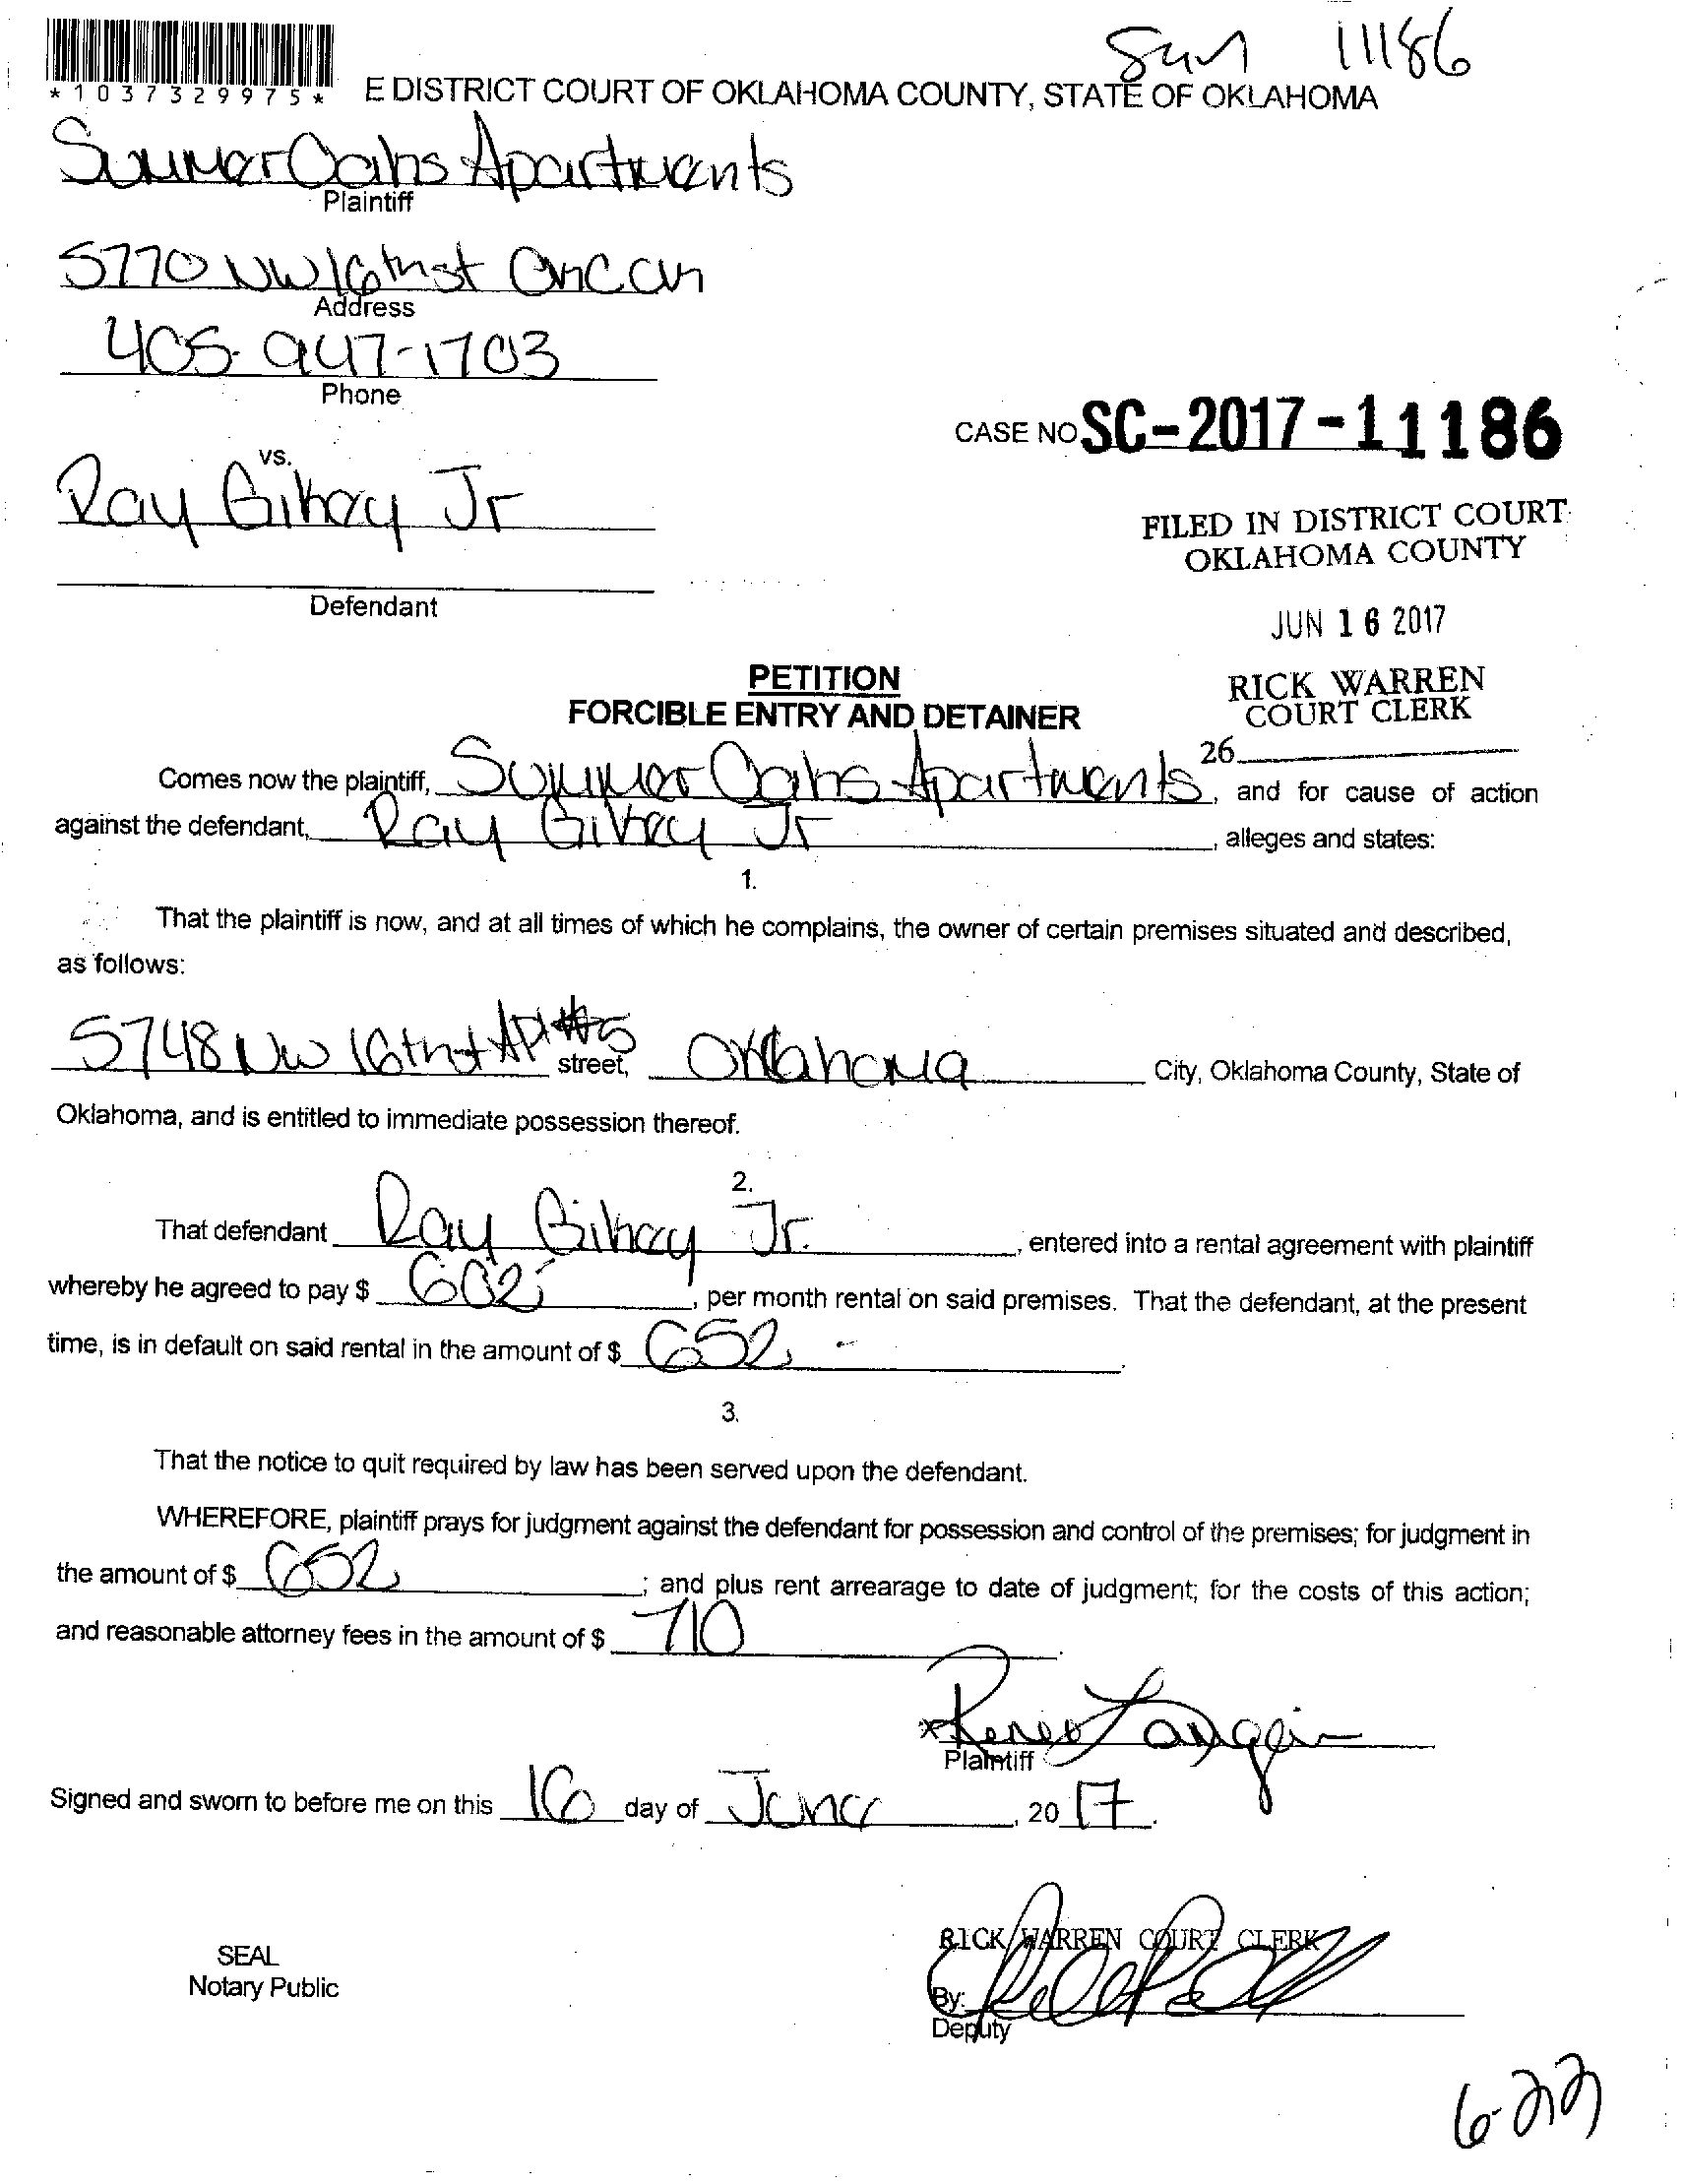 Sum 11186
*1037329975*
E DISTRICT COURT OF OKLAHOMA COUNTY, STATE OF OKLAHOMA
Summer Oaks Apartments
Plaintiff
5770 NW 16th st
Address
405-947-1703
Phone
CASE NO SC-2017-11186
vs.
Ray Jr
FILED IN DISTRICT COURT
OKLAHOMA COUNTY
Defendant
JUN 16 2017
PETITION
RICK WARREN
FORCIBLE ENTRY AND DETAINER
COURT CLERK
26
Comes now the plaintiff, Summer Oaks Apartments, and for cause of action
against the defendant, Ray Jr, alleges and states:
1.
That the plaintiff is now, and at all times of which he complains, the owner of certain premises situated and described,
as follows:
5748 NW 16th st Apt #5 street, Oklahoma City, Oklahoma County, State of
Oklahoma, and is entitled to immediate possession thereof.
2.
That defendant Ray Jr., entered into a rental agreement with plaintiff
whereby he agreed to pay $ 602, per month rental on said premises. That the defendant, at the present
time, is in default on said rental in the amount of $ 652 -
3.
That the notice to quit required by law has been served upon the defendant.
WHEREFORE, plaintiff prays for judgment against the defendant for possession and control of the premises; for judgment in
the amount of $ 652; and plus rent arrearage to date of judgment; for the costs of this action;
and reasonable attorney fees in the amount of $ 710
Plaintiff
Signed and sworn to before me on this 16 day of June, 20 17.
RICK WARREN COURT CLERK
SEAL
Notary Public
By:
Deputy
6-22